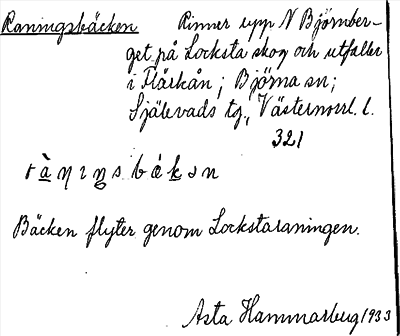 Raningsbäcken Rinner upp N Björnber-
get på Locksta skog och utfaller
i Flärkån; Björna sn;
Själevads tg., Västernorrl. l.
321
Bäcken flyter genom Lockstaraningen.
Asta Hammarberg 1933